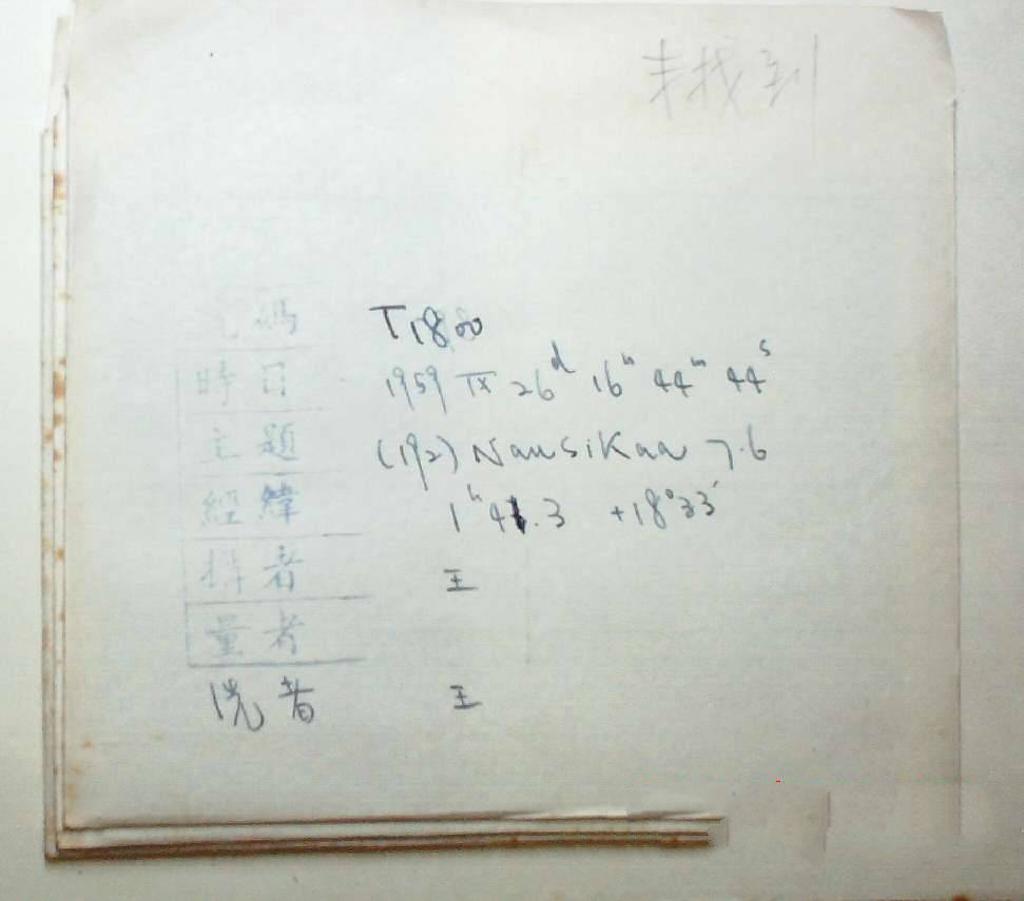 未找到
號碼 T1800
時日 1959 IX 26ᵈ 16ʰ 44ᵐ 44ˢ
主題 (192) Nausikaa 7.6
經緯 1ʰ 41.3 +18°33′
攝者 王
量者
洗者 王